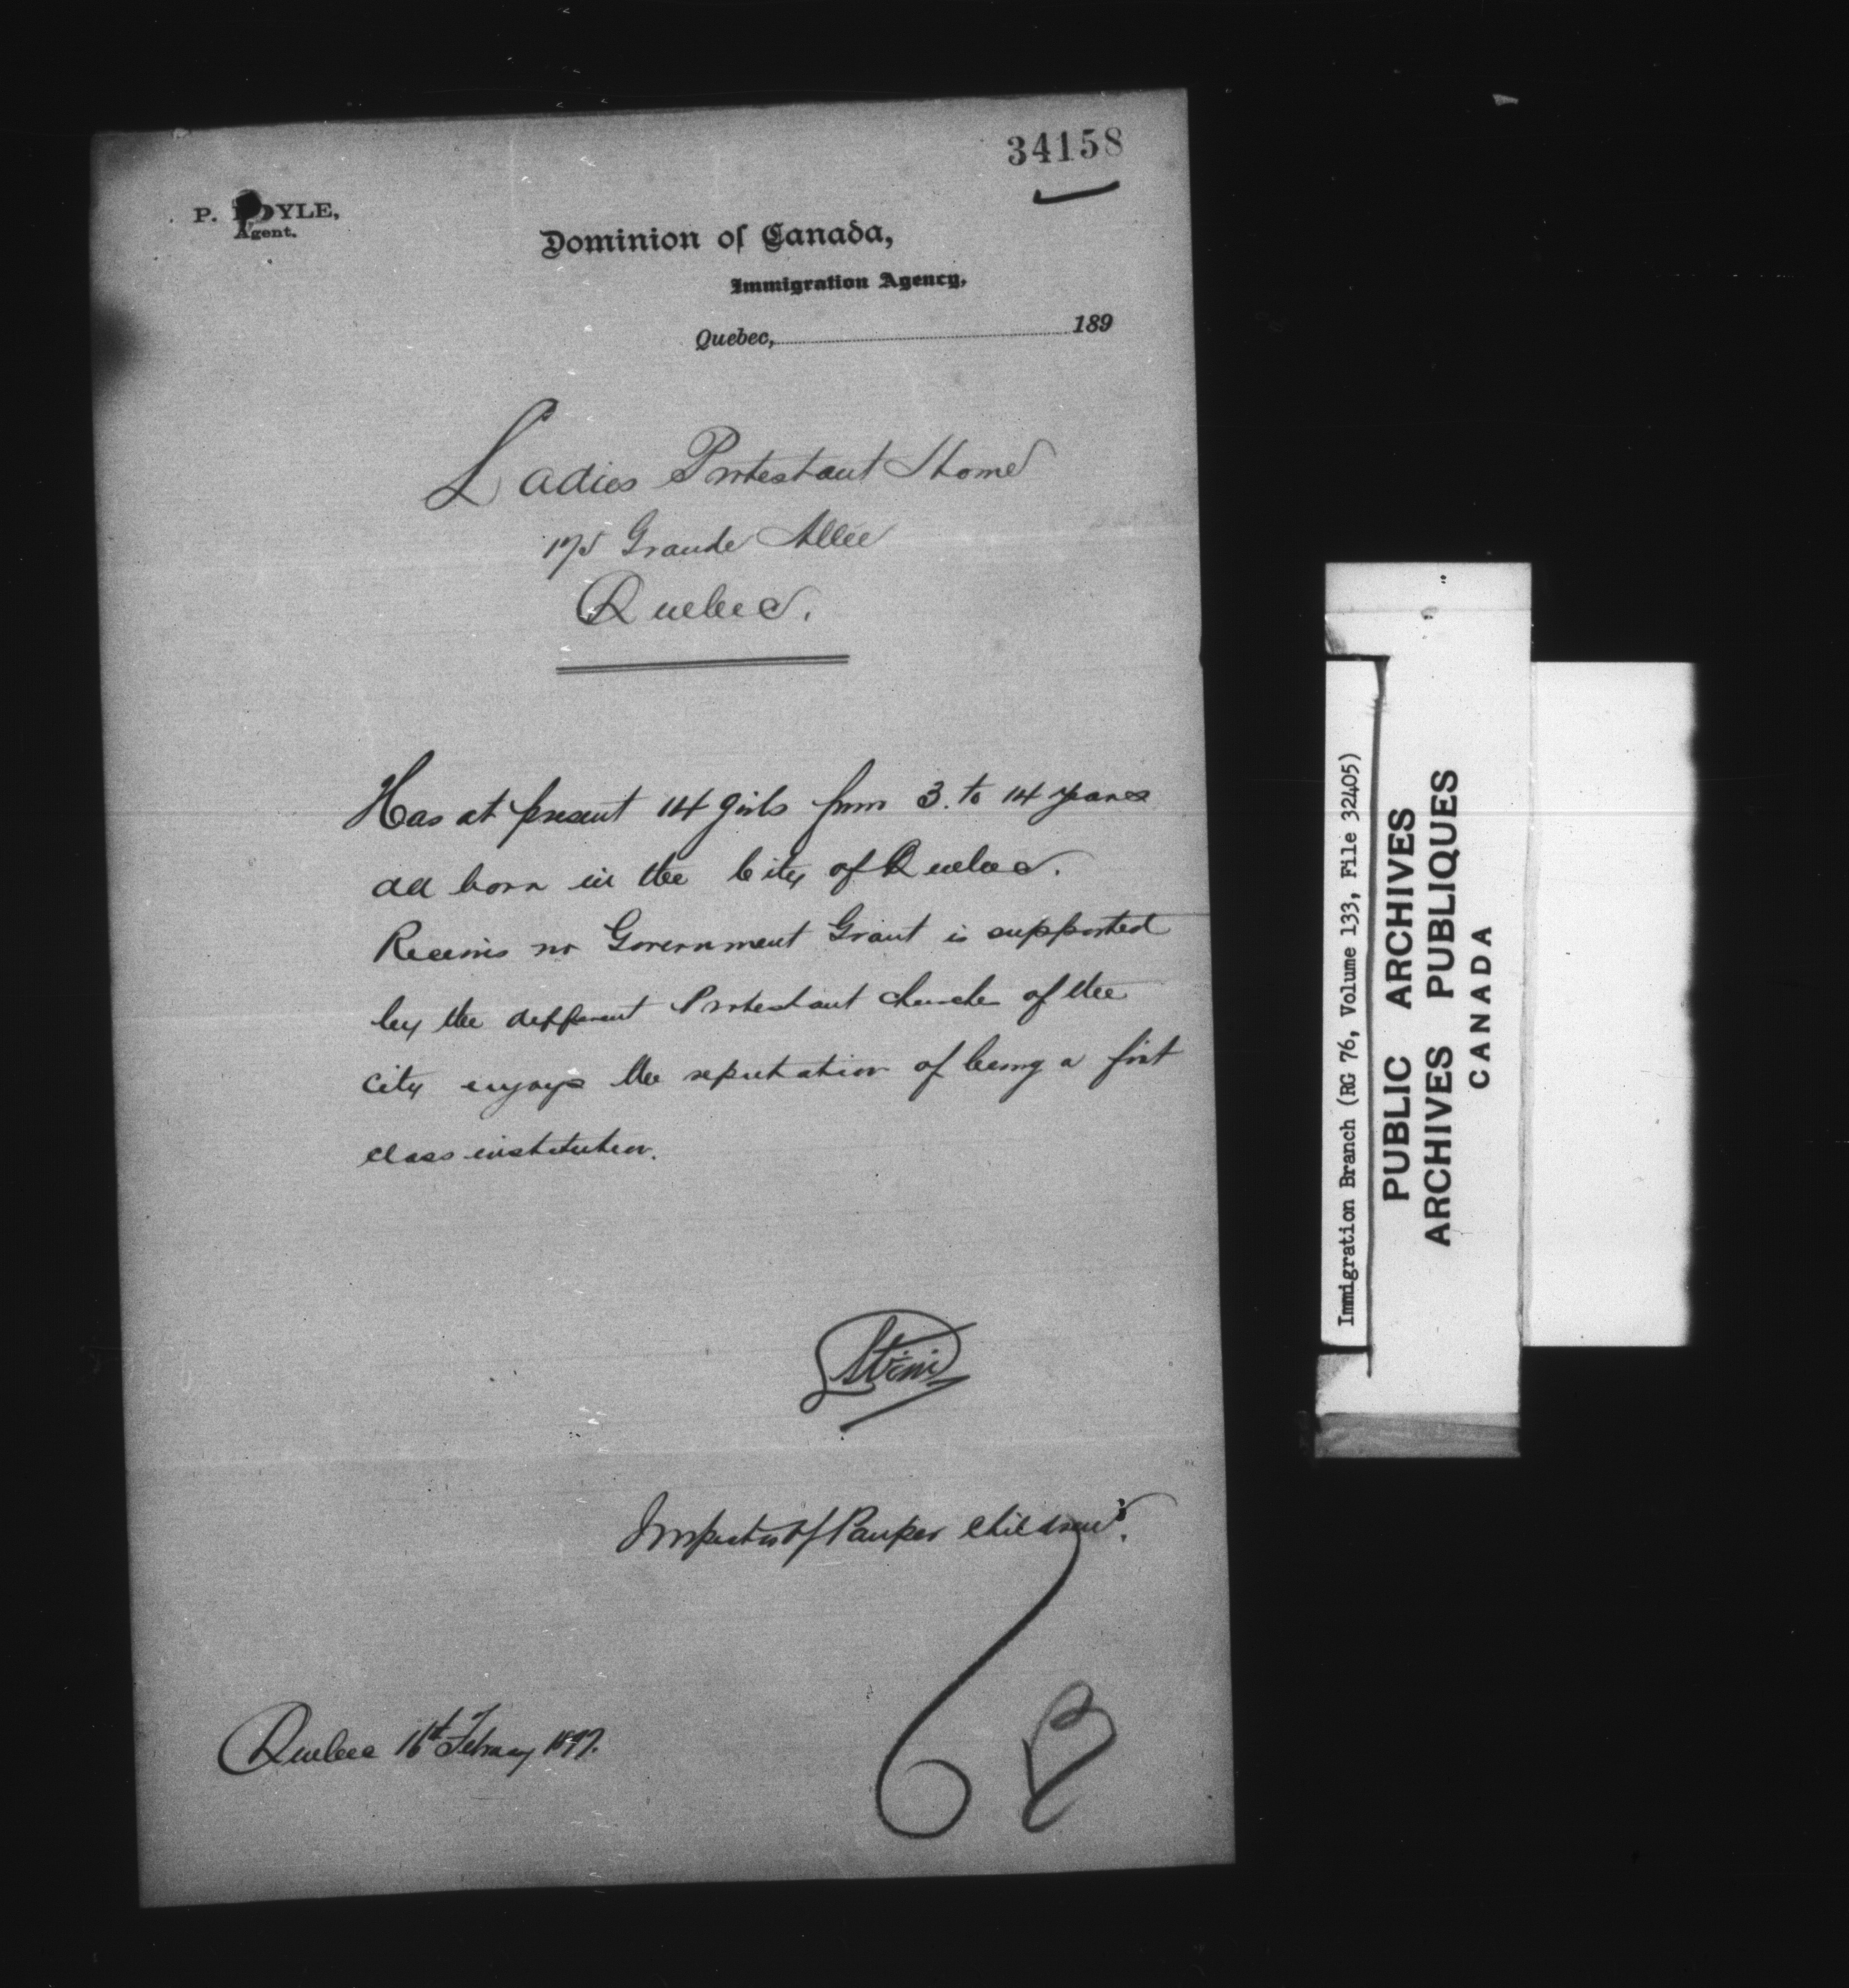 34158
P. DOYLE,
Agent.
Dominion of Canada,
Immigration Agency,
Quebec, 189
Ladies Protestant Home
175 Grande Allée
Quebec.
Has at present 14 girls from 3. to 14 years
all born in the City of Quebec.
Receives no Government Grant is supported
by the different Protestant church of the
city enjoys the reputation of being a first
class institution.
Inspector of Pauper children.
Quebec 16th February 1897.
Immigration Branch (RG 76, Volume 133, File 32405)
PUBLIC ARCHIVES
ARCHIVES PUBLIQUES
CANADA